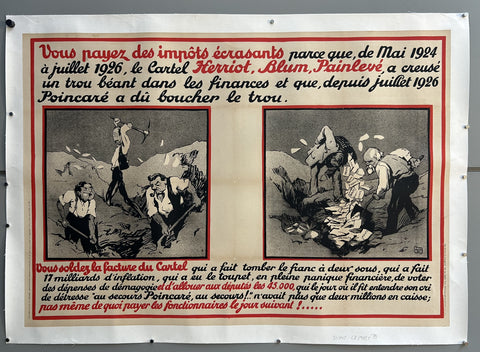 Vous payez des impôts écrasants parce que, de Mai 1924
à juillet 1926, le Cartel Herriot, Blum, Painlevé, a creusé
un trou béant dans les finances et que, depuis juillet 1926
Poincaré a dû boucher le trou.
Vous soldez la facture du Cartel qui a fait tomber le franc à deux sous, qui a fait
17 milliards d'inflation, qui a eu le toupet, en pleine panique financière, de voter
des dépenses de démagogie et d'allouer aux députés les 45.000, qui le jour où il fit entendre son cri
de détresse "au secours Poincaré, au secours!" n'avait plus que deux millions en caisse;
pas même de quoi payer les fonctionnaires le jour suivant!.....